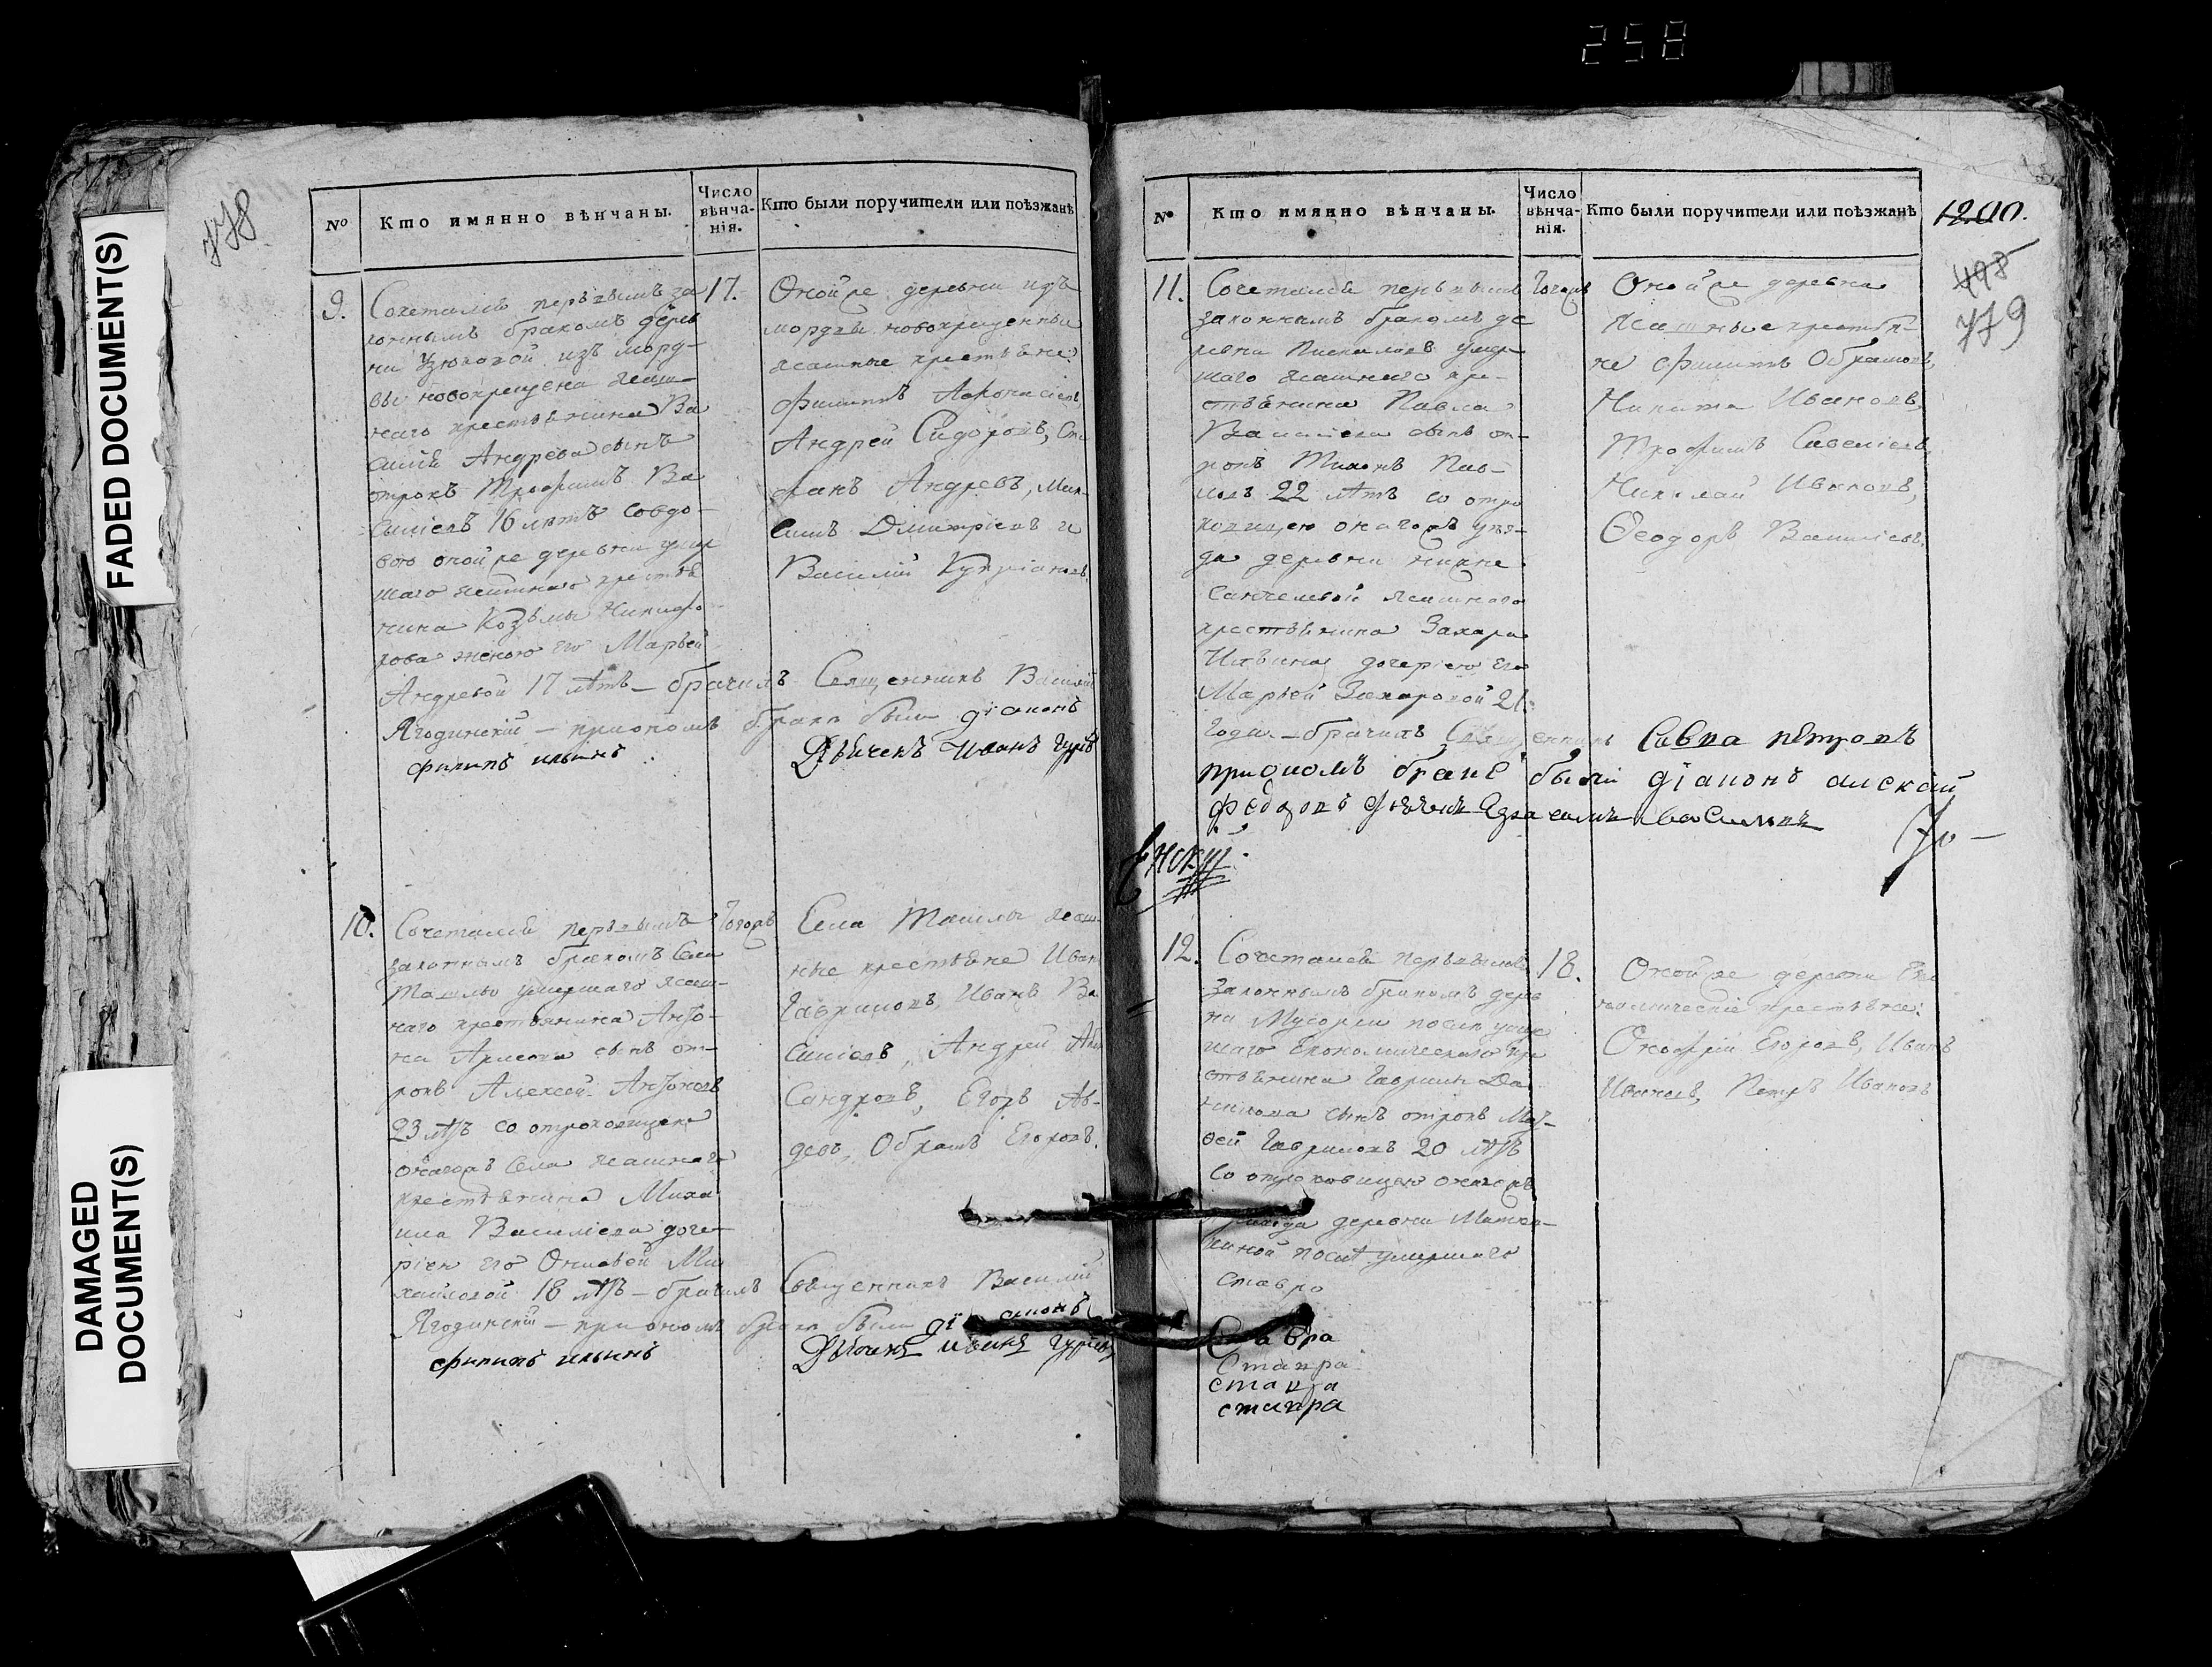 258
FADED DOCUMENT(S)
DAMAGED
DOCUMENT(S)
778
№
Кто имянно вѣнчаны.
Число
вѣнча-
нія.
Кто были поручители или поѣзжанѣ
9.
Сочетался первымъ за
коннымъ бракомъ дерев
ни Узюковой изъ морд-
вы новокрещена ясаш-
наго крестьянина Ва
силья Андрева сынъ
отрокъ Трофимъ Ва
силіевъ 16 лѣтъ совдо-
вою оной же деревни умер
шаго ясашнаго крестья
нина Козьмы Никифо-
рова женою его Марьей
Андревой 17 лѣтъ – брачилъ Священникъ Василій
Ягодинскій – приономъ браке были діаконъ
филипъ ильинъ
Дьячекъ Иванъ Гурьевъ
17.
Оной же деревни изъ
мордвы новокрещенныи
ясашные крестьяне:
Филиппъ Афонасіевъ,
Андрей Сидоровъ, Сте
фанъ Андревъ, Мак-
симъ Дмитріевъ и
Василій Купріановъ.
10.
Сочетался первымъ
законнымъ бракомъ Села
Ташлы умершаго ясаш-
наго крестьянина Анѳо-
на сынъ от-
рокъ Алексей Анѳоновъ
23 лѣтъ со отроковицею
оногожъ Села ясашнаго
крестьянина Миха
ила Василіева доче-
рію его Ми
хайловой 18 лѣтъ – брачилъ Священникъ Василій
Ягодинскій – приономъ браке были діаконъ
филипъ ильинъ
Дьячекъ иванъ гурьевъ
Тогожъ
Села Ташлы ясаш-
ные крестьяне Иванъ
Гавриловъ, Иванъ Ва
силіевъ, Андрей
Сандровъ, Егоръ Ав-
деевъ, Обрамъ Егоровъ.
№
Кто имянно вѣнчаны.
Число
вѣнча-
нія.
Кто были поручители или поѣзжанѣ
1200.
498
779
11.
Сочетался первымъ
законнымъ бракомъ де
ревни Пискаловъ умер-
шаго ясашнаго кре-
стьянина Павла
Василіева сынъ от-
рокъ Тихонъ Пав-
ловъ 22 лѣтъ со отро
ковицею оногожъ уѣз-
да деревни нижне
Санчелеевой ясашнаго
крестьянина Захара
дочерію его
Марьей Захаровой 21.
Года – брачилъ Священникъ Савва петровъ
приономъ браке были діаконъ алексій
федоровъ
Тогожъ
Оной же деревни
Ясашные крестья-
не Филиппъ Обрамовъ,
Никита Ивановъ,
Трофимъ Савеліевъ,
Николай Ивановъ,
Ѳеодоръ Василіевъ.
12.
Сочетался первымъ
законнымъ бракомъ дерев
ни Мусорки умер
шаго Экономическаго кре
стьянина Гаврилы Да
нилова сынъ отрокъ Маѳ-
ѳей Гавриловъ 20 лѣтъ
Со отроковицею оногожъ
уѣзда деревни
умершаго
Ставро
Ставра
Ставра
ставра
ставра
18.
Оной же деревни Эко
номическіе крестьяне:
Онофрій Егоровъ, Иванъ
Ивановъ, Петръ Ивановъ